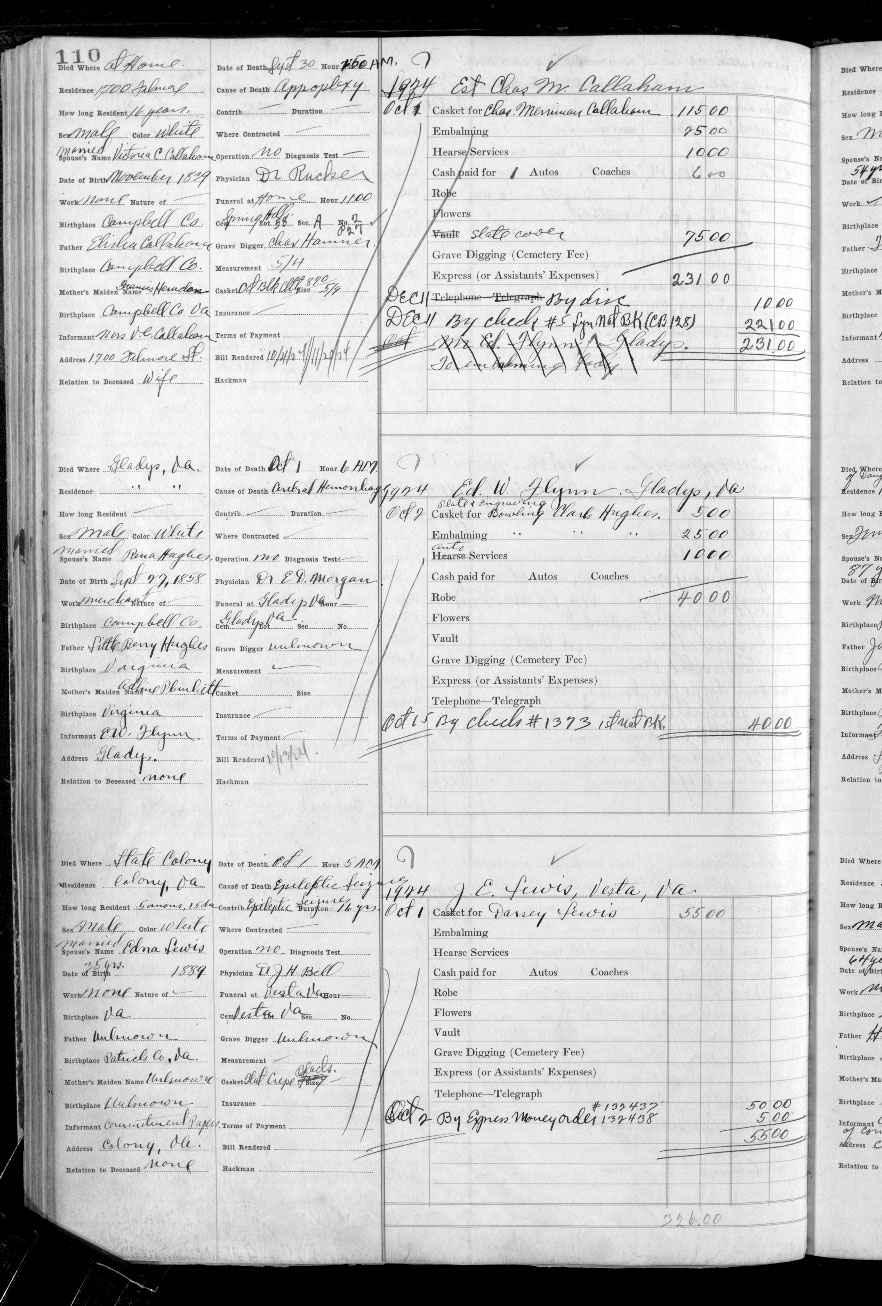 110
Died Where At Home.
Residence 1700 Filmore
How long Resident 16 years.
Sex Male Color White
Married
Spouse's Name Victoria C Callaham
Date of Birth November 1839
Work none Nature of —
Birthplace Campbell Co
Father Elisha Callaham
Birthplace Campbell Co.
Mother's Maiden Name Frances Herndon
Birthplace Campbell Co Va
Informant Mrs V.C. Callaham
Address 1700 Filmore St.
Relation to Deceased Wife
Date of Death Sept 30 Hour 1:50 A.M.
Cause of Death Appoplexy
Contrib. — Duration —
Where Contracted —
Operation no Diagnosis Test —
Physician Dr Rucker
Funeral at Home Hour 11:00
Cem. Spring Hill Lot 58 Sec. A No. 7
Grave Digger Chas Hamner.
Measurement 5/4
Casket Size 5/9
Insurance —
Terms of Payment —
Bill Rendered 10/4/24 11/28/24
Hackman
1924 Est Chas M. Callaham
Oct 1 Casket for Chas Merriman Callaham 115 00
Embalming 25 00
Hearse Services 10 00
Cash paid for 1 Autos Coaches 6 00
Robe
Flowers
Vault Slate cover 75 00
Grave Digging (Cemetery Fee)
Express (or Assistants' Expenses) 231 00
Dec 11 Telephone—Telegraph By disc 10 00
Dec 11 By check #5 Lyn Nat BK (CB 128) 221 00
Oct Mr Ed. Flynn Gladys. 231.00
To embalming body
Died Where Gladys, Va.
Residence " "
How long Resident —
Sex Male Color White
Married
Spouse's Name Rena Hughes
Date of Birth Sept 27, 1858
Work merchant Nature of
Birthplace Campbell Co.
Father Little Berry Hughes
Birthplace Virginia
Mother's Maiden Name Adline Plunkett
Birthplace Virginia
Informant E.W. Flynn
Address Gladys.
Relation to Deceased none
Date of Death Oct 1 Hour 6 AM.
Cause of Death Cerebral Hemorrhage
Contrib. — Duration —
Where Contracted —
Operation no Diagnosis Test —
Physician Dr E.D. Morgan
Funeral at Gladys Va Hour
Cem. Gladys Va Lot Sec. No.
Grave Digger unknown
Measurement —
Casket Size
Insurance —
Terms of Payment —
Bill Rendered 10/13/24.
Hackman
1924 Ed. W. Flynn. Gladys, Va
Plate & Engraving
Oct 2 Casket for Bowling Ward Hughes. 5 00
Embalming " " " 25 00
auto
Hearse Services 10 00
Cash paid for Autos Coaches
Robe 40 00
Flowers
Vault
Grave Digging (Cemetery Fee)
Express (or Assistants' Expenses)
Telephone—Telegraph
Oct 15 By check #1373 1st Nat BK. 40.00
Died Where State Colony
Residence Colony, Va
How long Resident 5 mons, 15 da
Sex Male Color White
Married
Spouse's Name Edna Lewis
35 yrs.
Date of Birth 1889
Work none Nature of —
Birthplace Va
Father Unknown
Birthplace Patrick Co, Va.
Mother's Maiden Name Unknown
Birthplace Unknown
Informant Commitment Papers.
Address Colony, Va.
Relation to Deceased none
Date of Death Oct 1 Hour 5 A.M.
Cause of Death Epileptic Seizures
Contrib. Epileptic Seizures Duration 16 yrs
Where Contracted —
Operation no. Diagnosis Test
Physician D. J H Bell
Funeral at Vesta Va Hour
Cem. Vesta Va Lot Sec. No.
Grave Digger Unknown
Measurement —
Casket Flat Crepe Size
Insurance
Terms of Payment
Bill Rendered
Hackman
1924 J E. Lewis, Vesta, Va
Oct 1 Casket for Dorsey Lewis 55 00
Embalming
Hearse Services
Cash paid for Autos Coaches
Robe
Flowers
Vault
Grave Digging (Cemetery Fee)
Express (or Assistants' Expenses)
Telephone—Telegraph
#132437 50 00
Oct 2 By Express Money order 132438 5 00
55 00
326.00